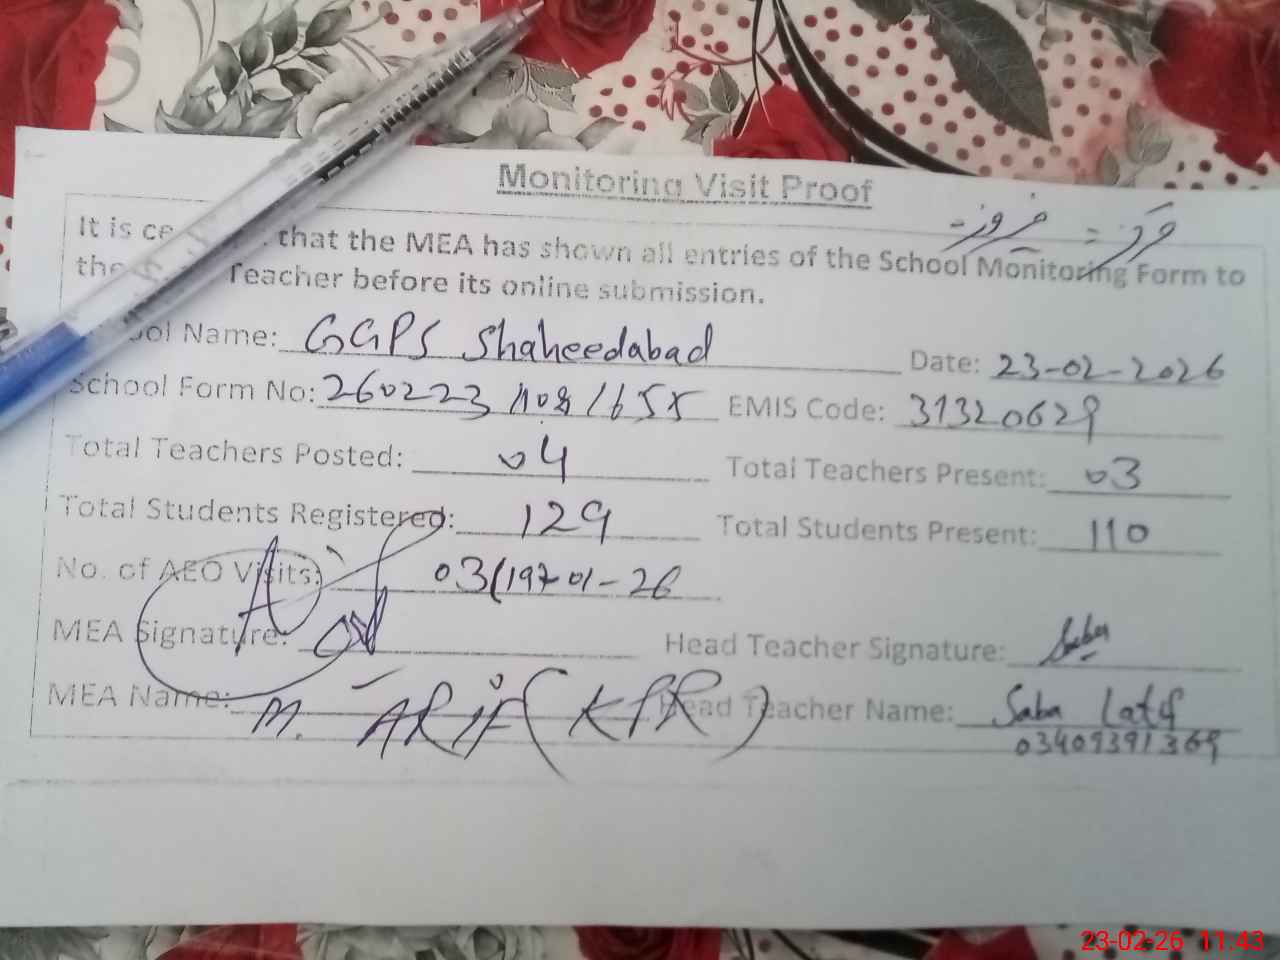 Monitoring Visit Proof
It is ce that the MEA has shown all entries of the School Monitoring Form to
the Teacher before its online submission.
ool Name: GGPS Shaheedabad Date: 23-02-2026
School Form No: 260223 1655 EMIS Code: 31320629
Total Teachers Posted: 04 Total Teachers Present: 03
Total Students Registered: 129 Total Students Present: 110
No. of AEO Visits: 03 -01-26
MEA Signature: Head Teacher Signature: Saba
MEA Name: M. ARIF (KPR) Head Teacher Name: Saba Latif
03409391369
23-02-26 11:43